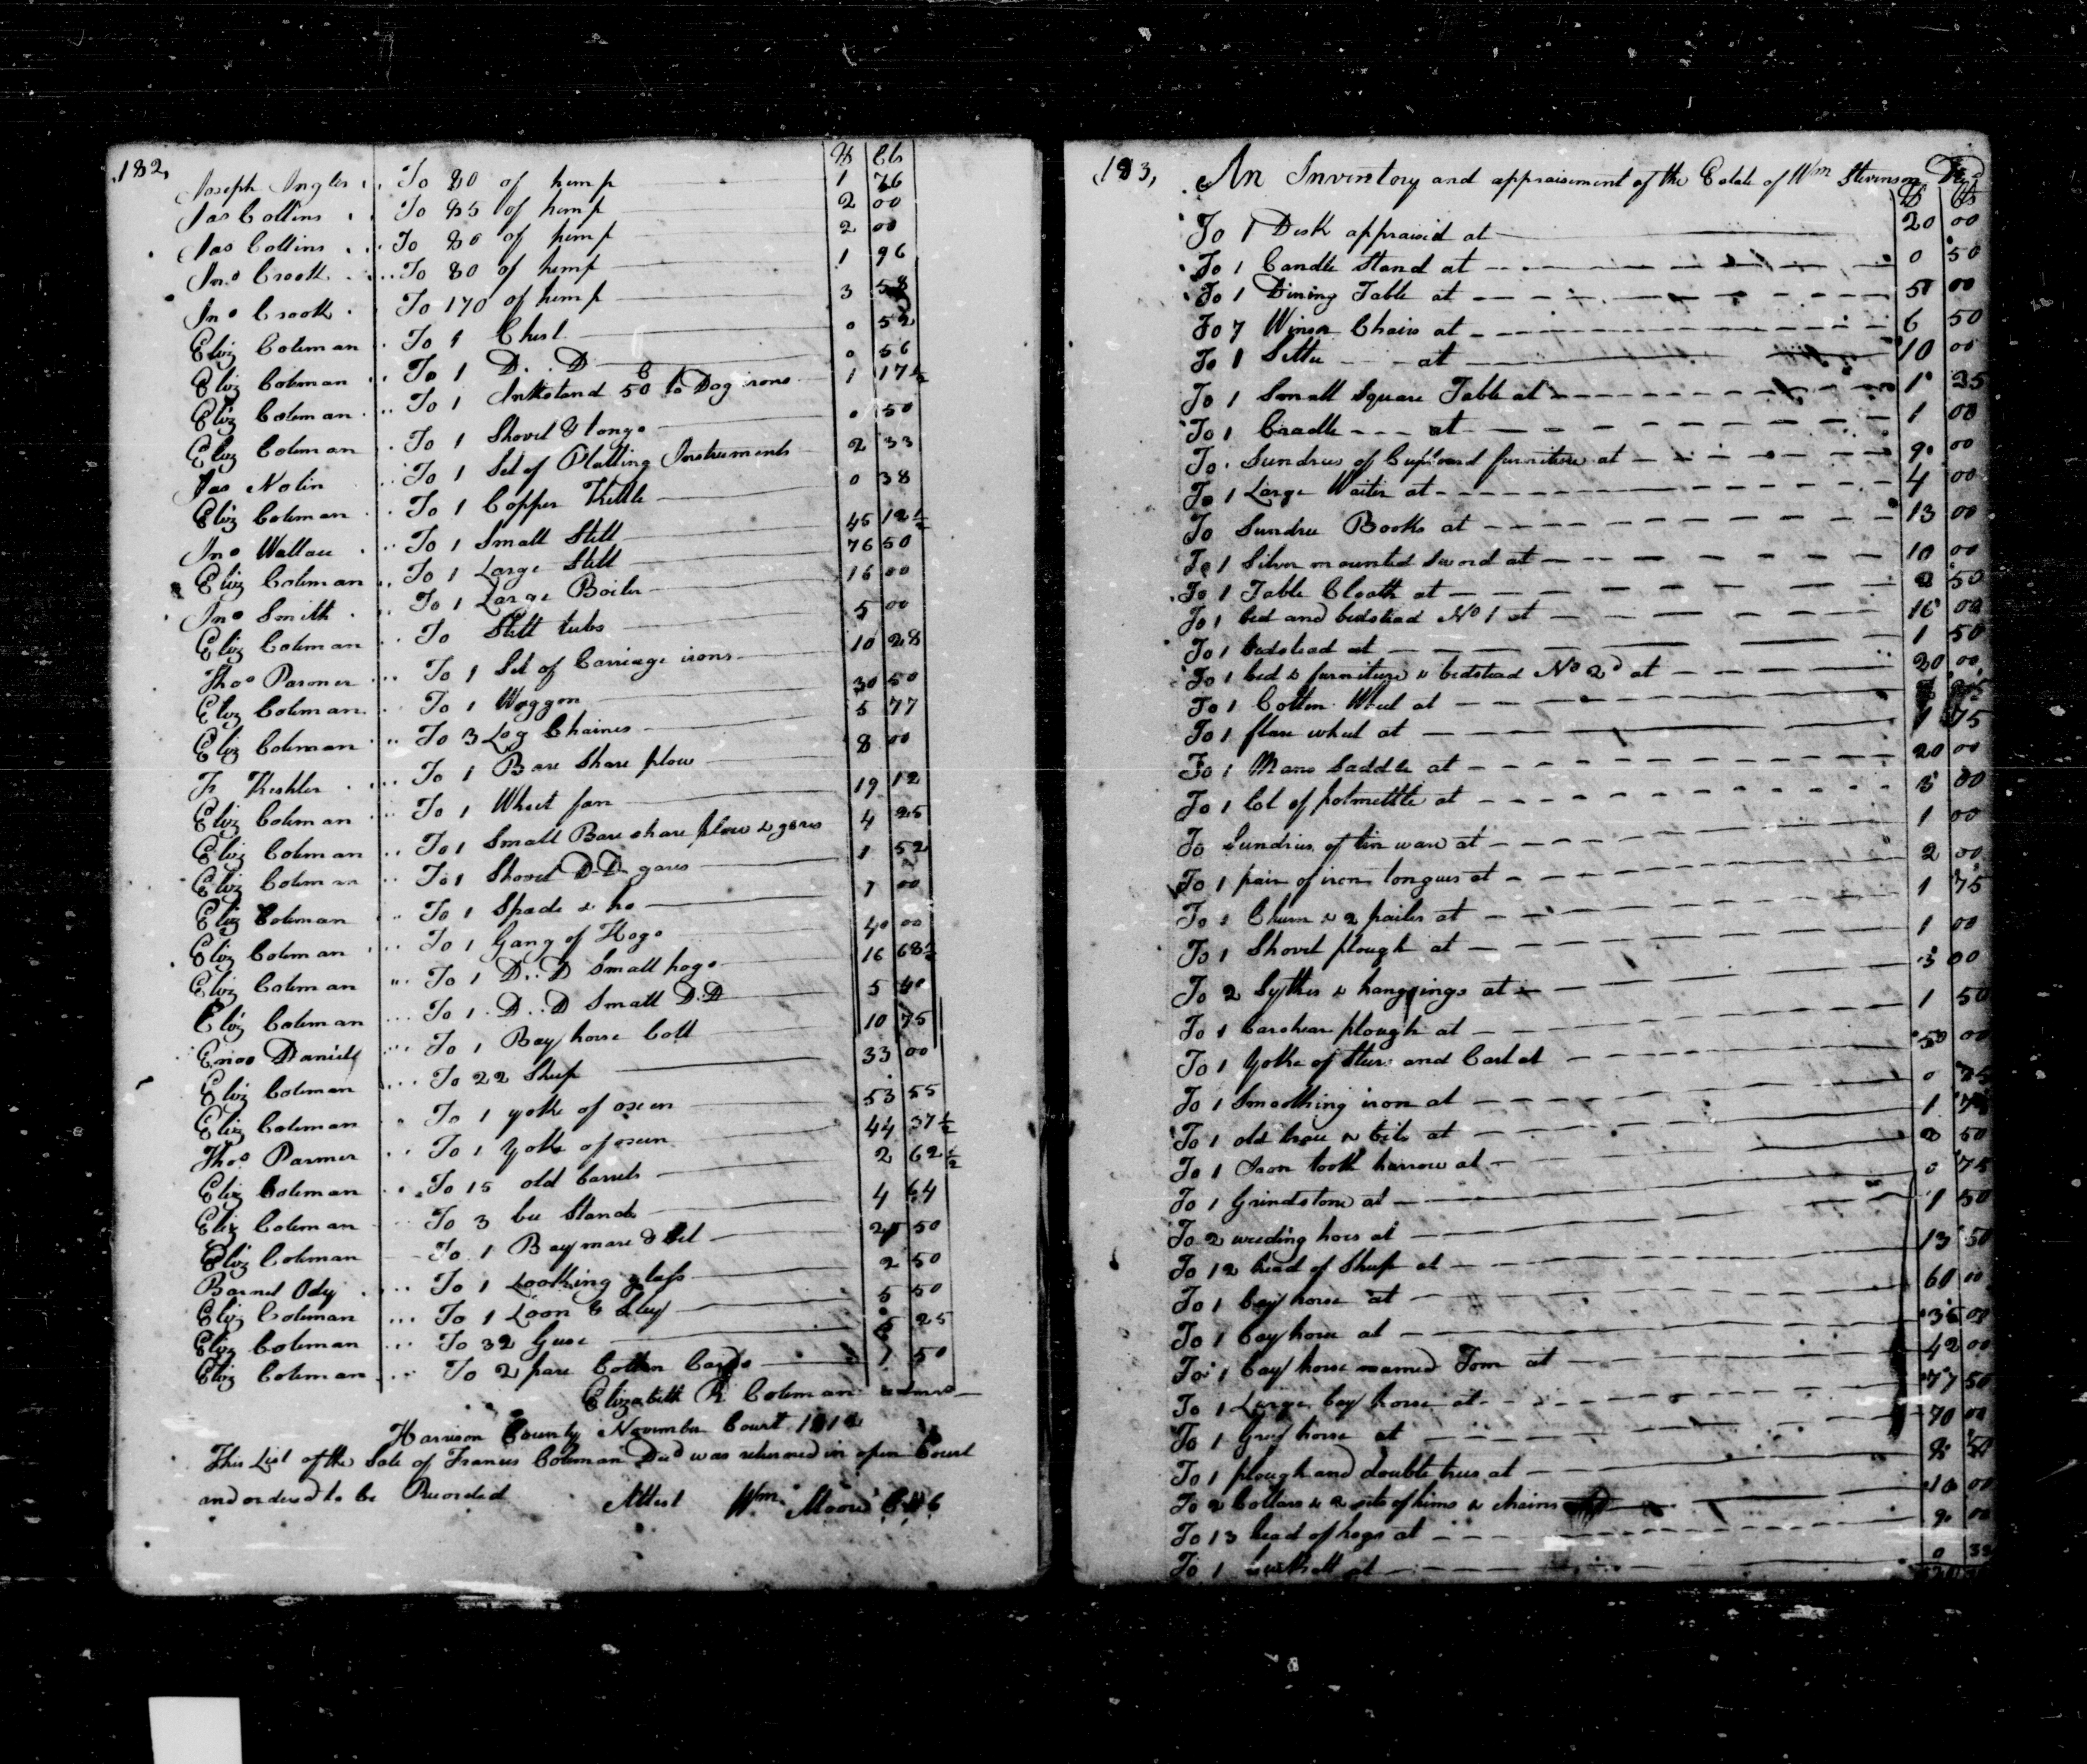 182,
$ Cts
Joseph Ingles .. To 80 of hemp 1 76
Jas Collins .. To 85 of hemp 2 00
Jas Collins ... To 80 of hemp 2 00
Jno Crook ... To 80 of hemp 1 96
Jno Crook . To 170 of hemp 3 58
Eliz Coleman . To 1 Chest 0 52
Eliz Coleman .. To 1 D..D 0 56
Eliz Coleman .. To 1 Inkstand 50 to Dog irons 1 17½
Eliz Coleman . To 1 Shovel & tongs 0 50
Jas Nolin .. To 1 Set of Platting Instruments 2 33
Eliz Coleman .. To 1 Copper Kettle 0 38
Jno Wallace .. To 1 Small Still 45 12½
Eliz Coleman .. To 1 Large Still 76 50
Jno Smith .. To 1 Large Boiler 16 00
Eliz Coleman .. To Still tubs 5 00
Thos Parmer ... To 1 Set of Carriage irons 10 28
Eliz Coleman .. To 1 Waggon 30 50
Eliz Coleman .. To 3 Log Chaines 5 77
Keshler ... To 1 Bare Share plow 8 00
Eliz Coleman ... To 1 Wheet fan 19 12
Eliz Coleman .. To 1 Small Bare share plow & gares 4 25
Eliz Coleman .. To 1 Shovel D..D gares 1 52
Eliz Coleman .. To 1 Spade & ho 1 00
Eliz Coleman ... To 1 Gang of Hogs 40 00
Eliz Coleman ... To 1 D..D Small hogs 16 68½
Eliz Coleman ... To 1 D..D Small D..D 5 40
Enos Daniels ... To 1 Bay horse Colt 10 75
Eliz Coleman ... To 22 Sheep 33 00
Eliz Coleman . To 1 yoke of oxen 53 55
Thos Parmer .. To 1 yoke of oxen 44 37½
Eliz Coleman .. To 15 old barrels 2 62½
Eliz Coleman .. To 3 bee Stands 4 64
Eliz Coleman To 1 Bay mare & 50
Barnet Ody ... To 1 Looking glass 2 50
Eliz Coleman ... To 1 Loom & Sley 5 50
Eliz Coleman ... To 32 Geese 25
Eliz Coleman ... To 2 pare Cotten Cards 1 50
Elizabeth R Coleman admrx
Harrison County November Court 1812
This List of the Sale of Francis Coleman Decd was returned in open Court
and ordered to be Recorded
Attest Wm Moore C H C
183,
An Inventory and appraisement of the Estate of Wm Stevenson Decd
$ Cts
To 1 Desk appraised at 20 00
To 1 Candle Stand at 0 50
To 1 Dining Table at 5 00
To 7 Winsor Chairs at 6 50
To 1 Settee at 10 00
To 1 Small Square Table at 1 25
To 1 Cradle at 1 00
To Sundries of Cupboard furniture at 9 00
To 1 Large Waiter at 4 00
To Sundree Books at 13 00
To 1 Silver mounted Sword at 10 00
To 1 Table Cloath at 2 50
To 1 bed and bedstead No 1 at 16 00
To 1 bedstead at 1 50
To 1 bed & furniture & bedstead No 2d at 30 00
To 1 Cotten Wheel at
To 1 flax wheel at 1 75
To 1 Mans Saddle at 20 00
To 1 lot of potmettle at 3 00
To Sundries of tin ware at 1 00
To 1 pair of iron tongues at 2 00
To 1 Churn & 2 pailes at 1 75
To 1 Shovel plough at 1 00
To 2 Sythes & hangings at 3 00
To 1 barshear plough at 1 50
To 1 Yoke of Steers and Cart at 50 00
To 1 Smoothing iron at 0 75
To 1 old & bits at 1
To 1 Iron tooth harrow at 2 50
To 1 Grindstone at 0 75
To 2 weeding hoes at 1 50
To 12 head of Sheep at 13 50
To 1 bay horse at 60 00
To 1 bay horse at 35 00
To 1 bay horse named Tom at 42 00
To 1 Large bay horse at 77 50
To 1 Grey horse at 70 00
To 1 plough and doubletrees at 50
To 2 Collars & 2 sets of hims & chains 10 00
To 13 head of hogs at 9 00
To 1 at 0